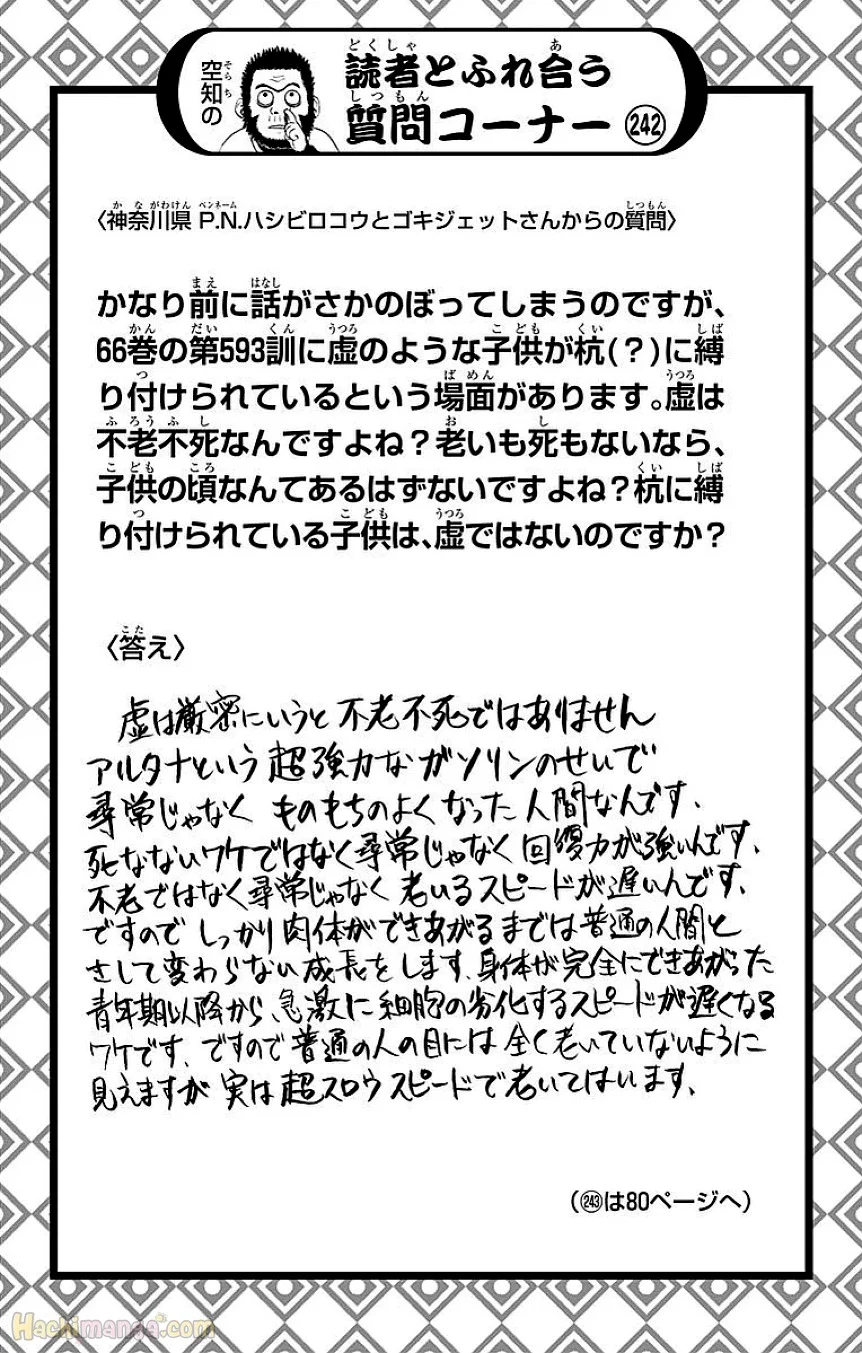 空知の
読者とふれ合う
質問コーナー 242
〈神奈川県 P.N.ハシビロコウとゴキジェットさんからの質問〉
かなり前に話がさかのぼってしまうのですが、
66巻の第593訓に虚のような子供が杭(?)に縛
り付けられているという場面があります。虚は
不老不死なんですよね?老いも死もないなら、
子供の頃なんてあるはずないですよね?杭に縛
り付けられている子供は、虚ではないのですか?
〈答え〉
虚は厳密にいうと不老不死ではありません
アルタナという超強力なガソリンのせいで
尋常じゃなく ものもちのよくなった人間なんです、
死なないワケではなく尋常じゃなく回復力が強いんです、
不老ではなく尋常じゃなく老いるスピードが遅いんです、
ですので しっかり肉体ができあがるまでは普通の人間と
さして変わらない成長をします、身体が完全にできあがった
青年期以降から、急激に細胞の劣化するスピードが遅くなる
ワケです、ですので普通の人の目には全く老いていないように
見えますが実は超スロウスピードで老いてはいます、
(243は80ページへ)
Hachimanga.com